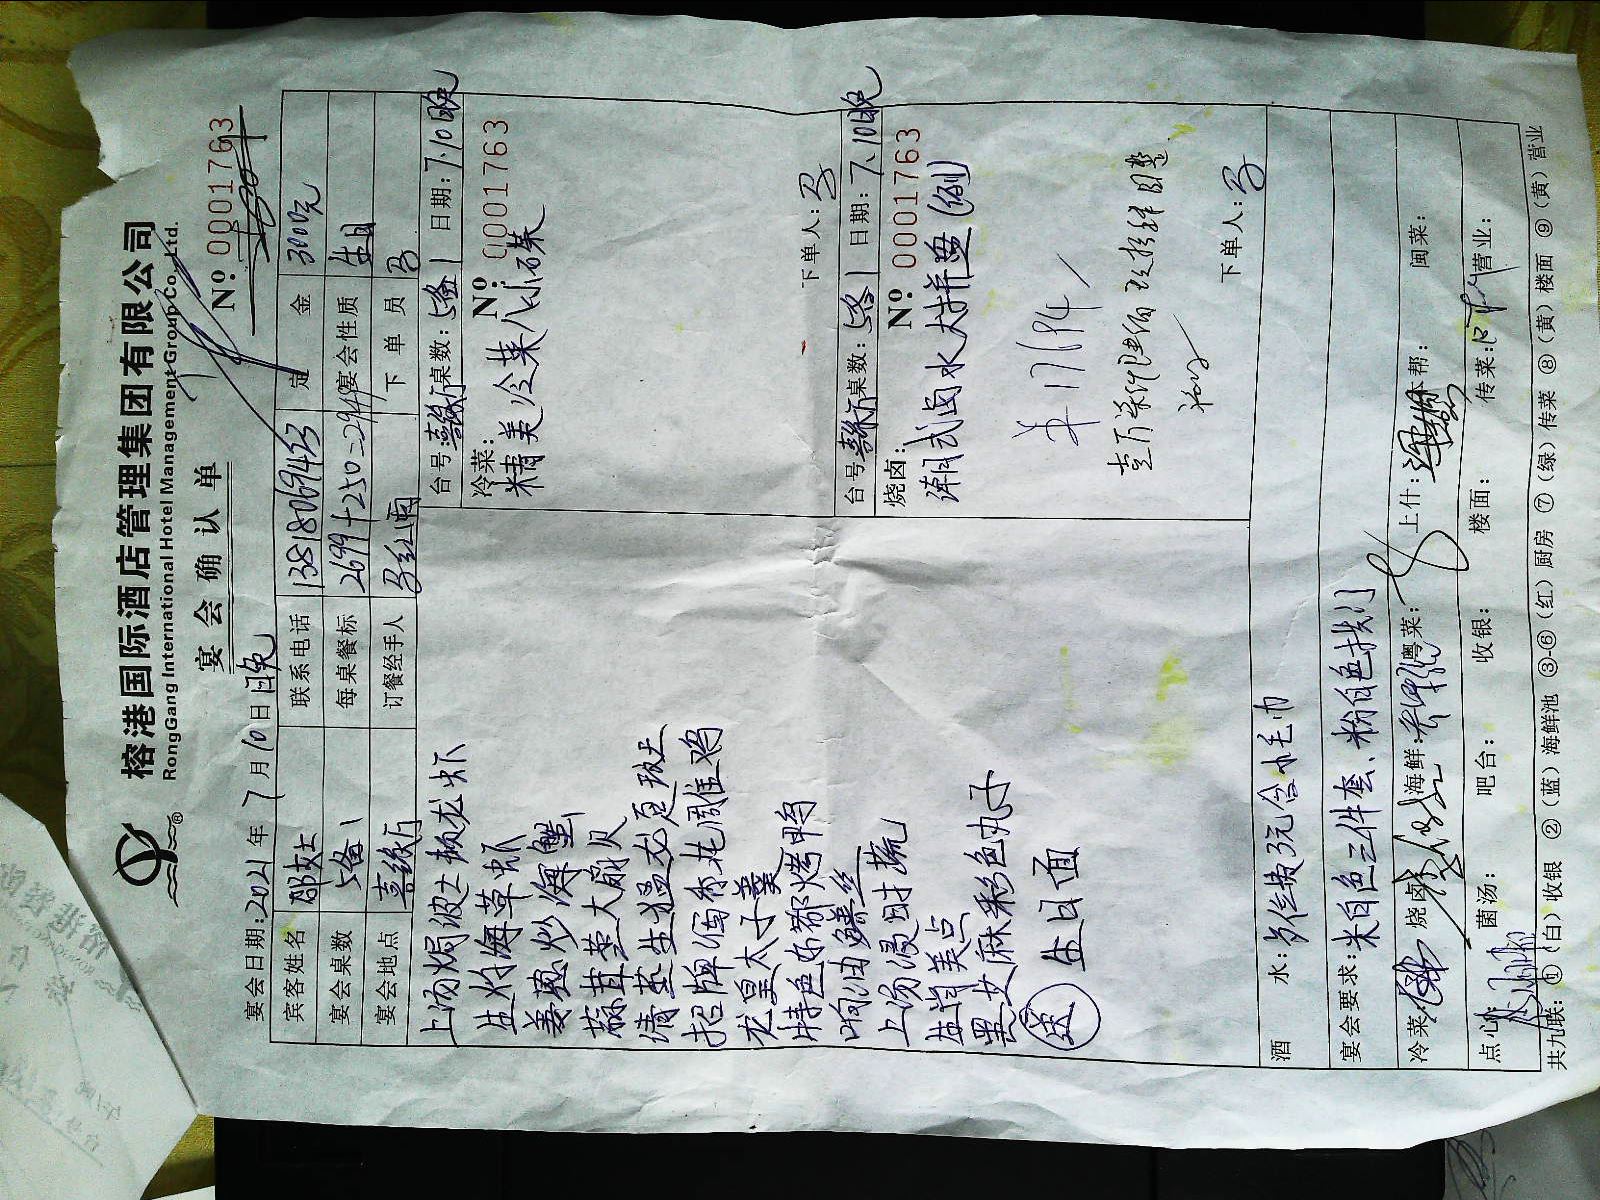 榕港国际酒店管理集团有限公司
RongGang International Hotel Management Group Co., Ltd.
宴会确认单
№ 0001763
宴会日期:2021年7月10日晚
宾客姓名 邵女士 联系电话 13818069453 定金 3000元
宴会桌数 5备1 每桌餐标 2699+250=2949 宴会性质 生日
宴会地点 喜缘厅 订餐经手人 下单员
上汤焗波士顿龙虾
生灼海草虾
姜葱炒海蟹
蒜茸蒸大扇贝
清蒸生猛龙趸斑
招牌葱香花雕鸡
龙皇太子羹
特色京都烤鸭
响油鳝丝
上汤浸时蔬
生煎美点
黑芝麻彩色丸子
送 生日面
台号:喜缘厅 桌数:5备1 日期:7.10日晚
冷菜: № 0001763
精美冷菜八小碟
下单人:
台号 喜缘厅 桌数:5备1 日期:7.10日晚
烧卤: № 0001763
潮式卤水大拼盘(例)
下单人:
酒水:茶位费3元含小毛巾
宴会要求:米白色三件套、粉白色拱门
冷菜 烧卤 海鲜: 粤菜: 上什: 本帮: 闽菜:
点心 菌汤: 吧台: 收银: 楼面: 传菜: 营业:
共九联: ①(白)收银 ②(蓝)海鲜池 ③-⑥(红)厨房 ⑦(绿)传菜 ⑧(黄)楼面 ⑨(黄)营业